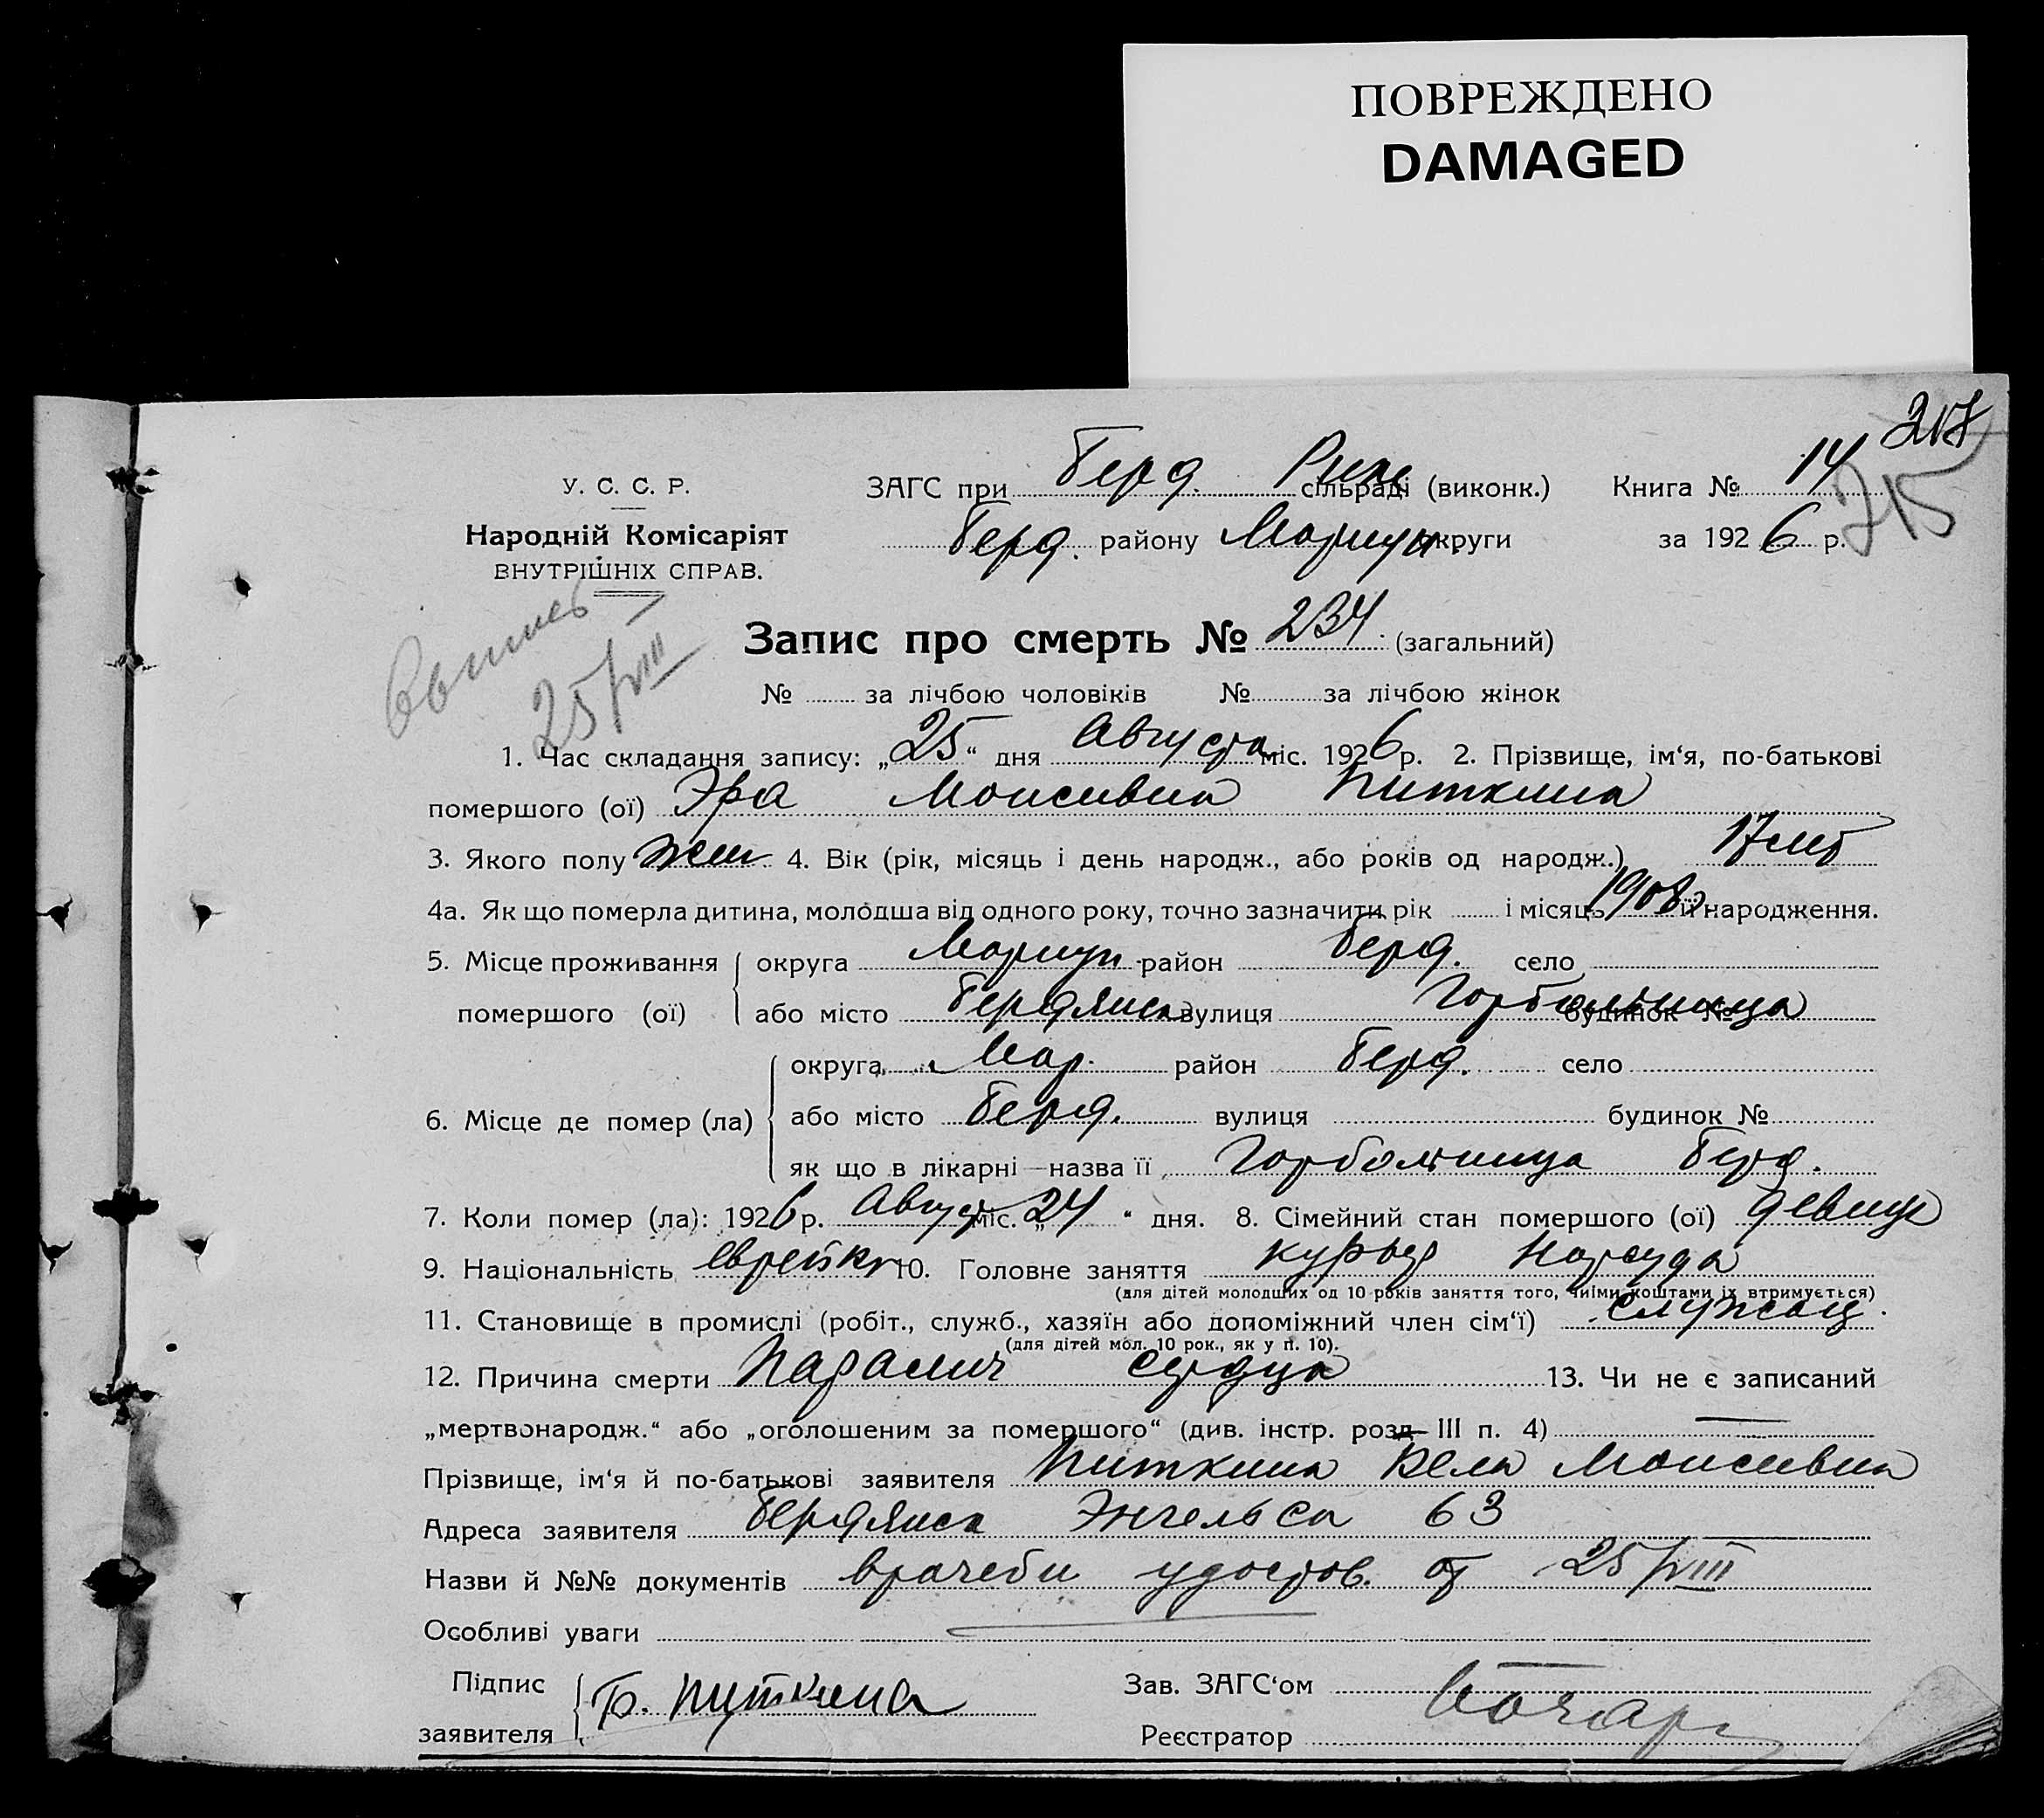 ПОВРЕЖДЕНО
DAMAGED
217
У. С. С. Р.
Народній Комісаріят
ВНУТРІШНІХ СПРАВ.
ЗАГС при Берд. Рике сільраді (виконк.) Книга № 14
215
Берд. району Мариуп. округи за 1926 р.
Выпись
25/VIII
Запис про смерть № 234 (загальний)
№ за лічбою чоловіків № за лічбою жінок
1. Час складання запису: „25“ дня Августа міс. 1926 р. 2. Прізвище, ім‘я, по-батькові
помершого (ої) Эра Моисивна Питкина
3. Якого полу жен 4. Вік (рік, місяць і день народж., або років од народж.) 17 лет
4а. Як що померла дитина, молодша від одного року, точно зазначити рік і місяць 1908 її народження.
5. Місце проживання округа Мариуп. район Берд. село
помершого (ої) або місто Бердянск вулиця Горбольница будинок №
округа Мар. район Берд. село
6. Місце де помер (ла) або місто Берд. вулиця будинок №
як що в лікарні—назва її Горбольница Берд.
7. Коли помер (ла): 1926 р. Август міс. „24“ дня. 8. Сімейний стан помершого (ої) девица
9. Національність еврейка 10. Головне заняття курьер Нарсуда
(для дітей молодших од 10 років заняття того, чиїми коштами їх втримується)
11. Становище в промислі (робіт., служб., хазяїн або допоміжний член сім‘ї) служащ.
(для дітей мол. 10 рок., як у п. 10).
12. Причина смерти Паралич сердца 13. Чи не є записаний
„мертвонародж.“ або „оголошеним за помершого“ (див. інстр. розд. III п. 4) —
Прізвище, ім‘я й по-батькові заявителя Питкина Бела Моисивна
Адреса заявителя Бердянск Энгельса 63
Назви й №№ документів врачебн удостов. от 25/VIII
Особливі уваги —
Підпис
заявителя Б. Питкина
Зав. ЗАГС‘ом
Реєстратор